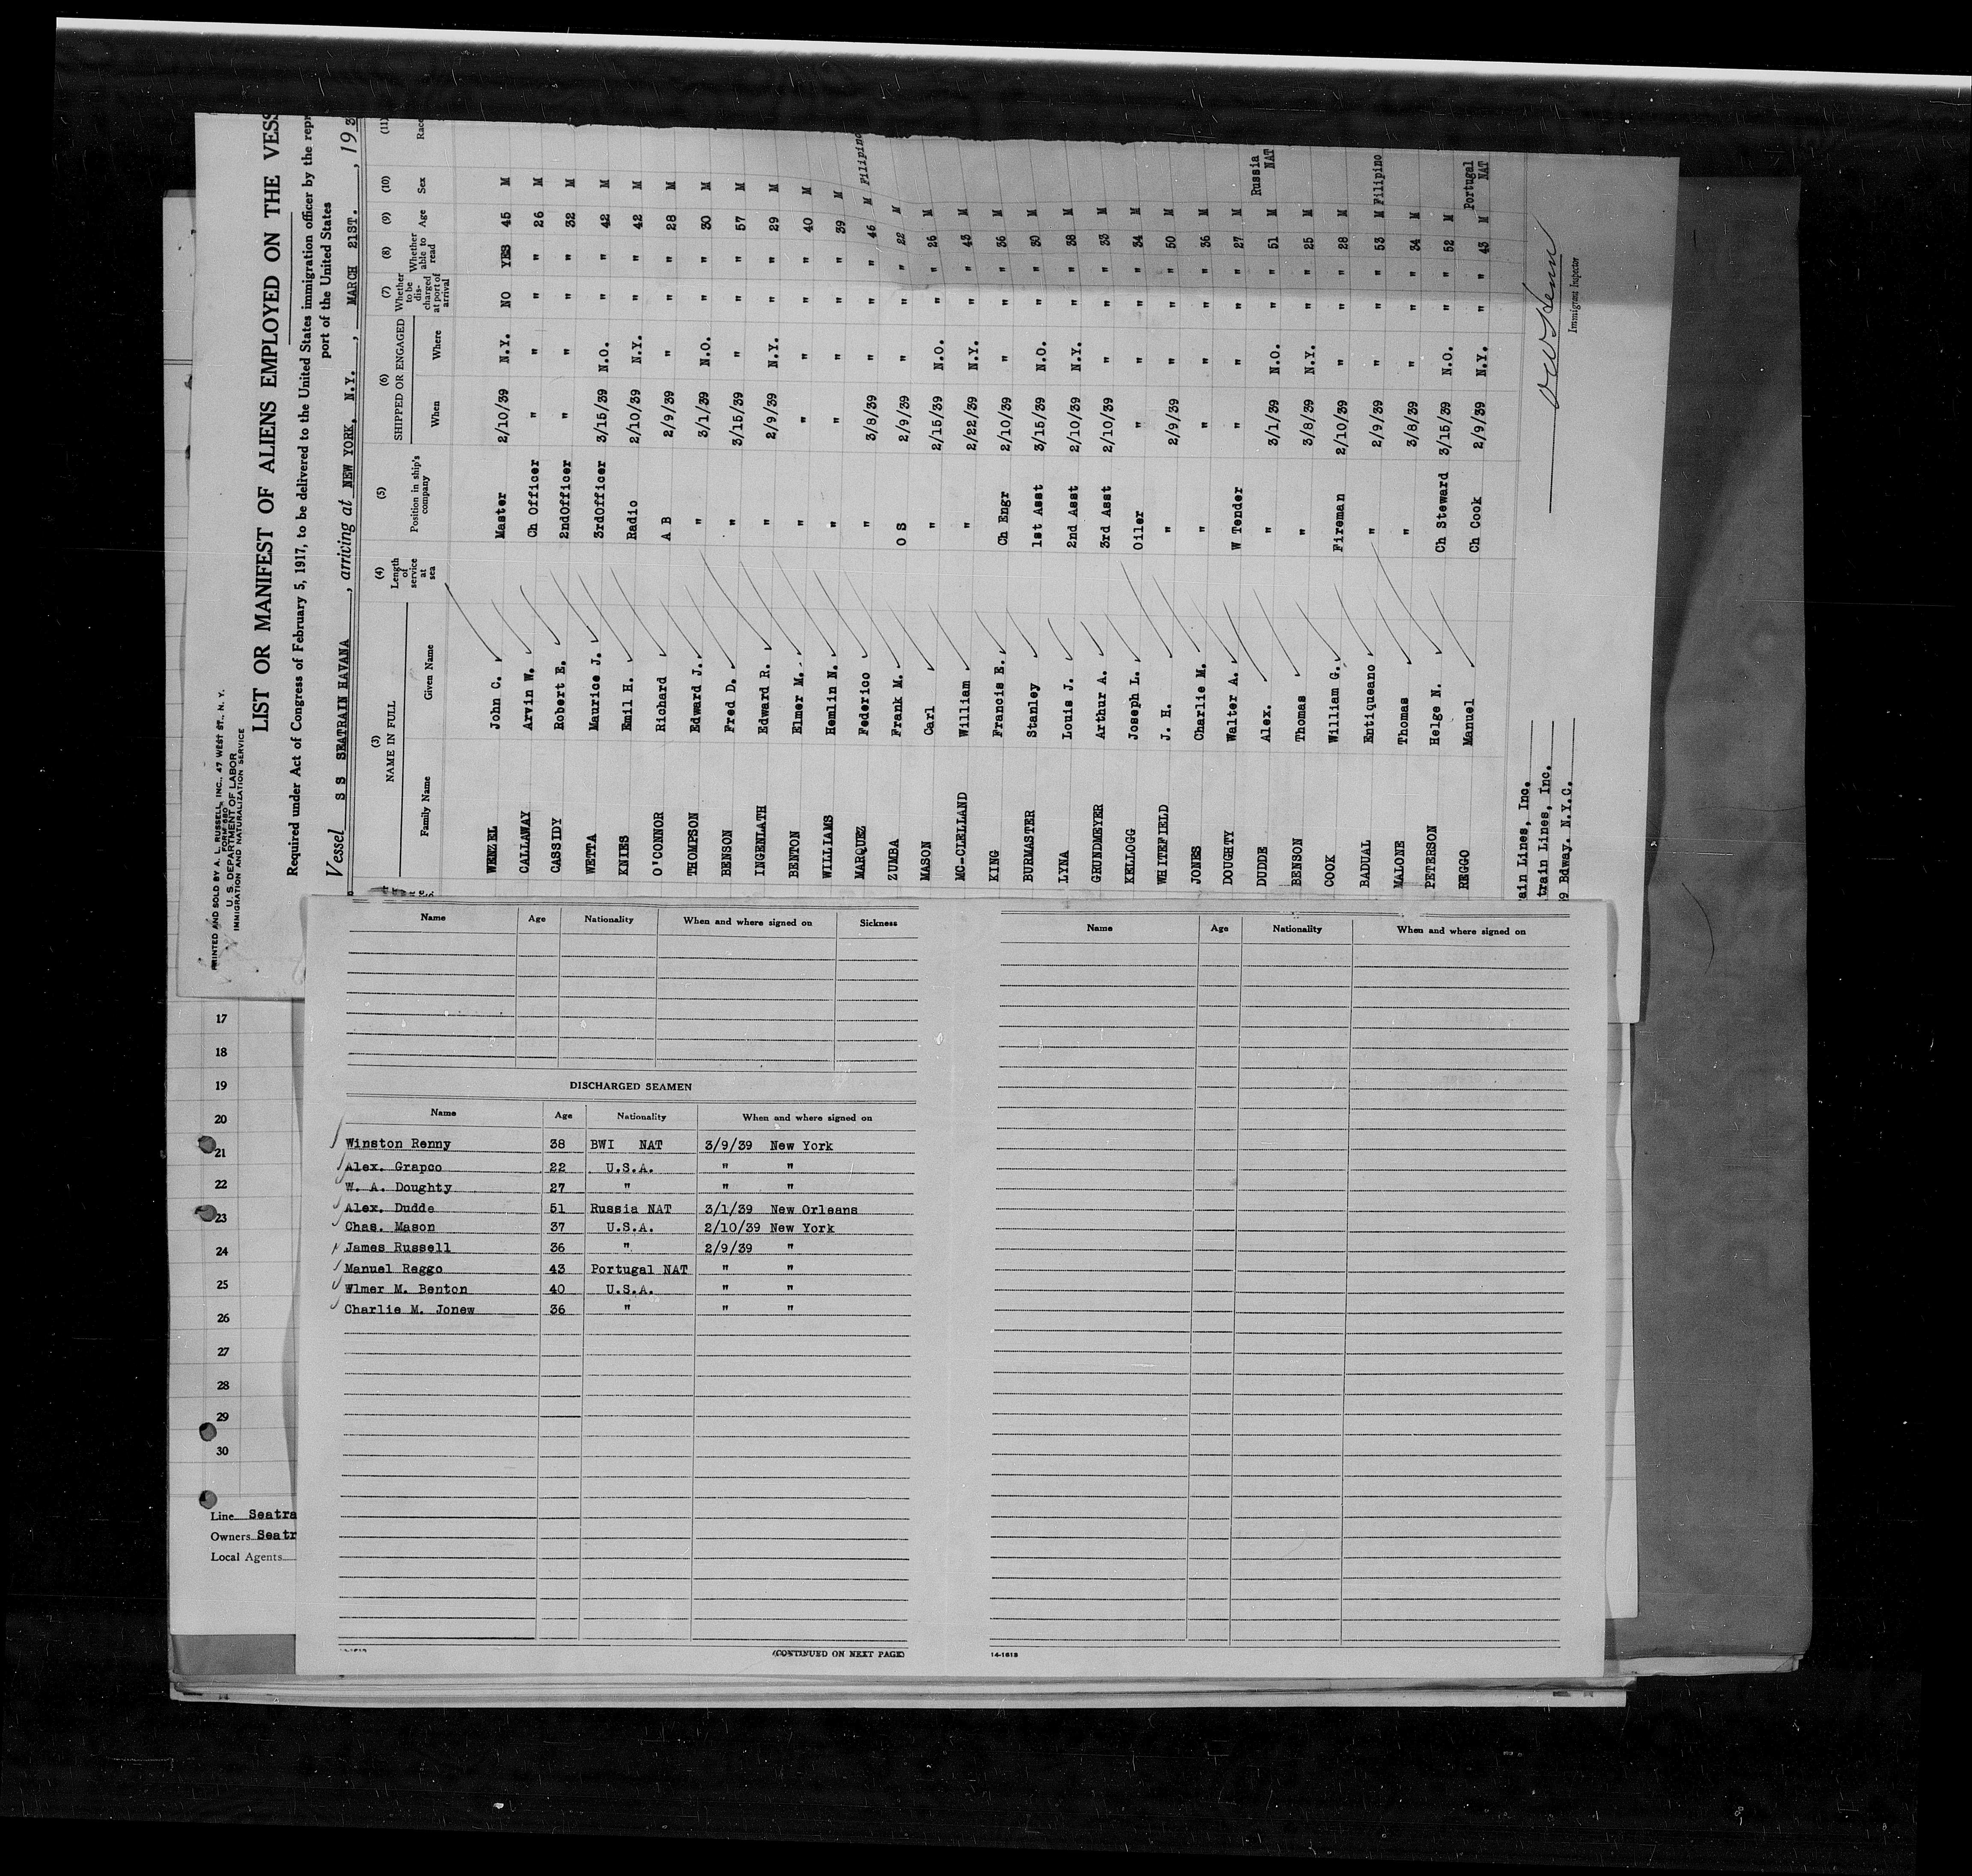 PRINTED AND SOLD BY A. L. RUSSELL, INC., 47 WEST ST., N. Y.
FORM 680
U. S. DEPARTMENT OF LABOR
IMMIGRATION AND NATURALIZATION SERVICE
LIST OR MANIFEST OF ALIENS EMPLOYED ON THE VESS
Required under Act of Congress of February 5, 1917, to be delivered to the United States immigration officer by the repr
port of the United States
Vessel S S SEATRAIN HAVANA, arriving at NEW YORK, N.Y., MARCH 21ST., 193
(3) (4) (5) (6) (7) (8) (9) (10) (11)
NAME IN FULL Length of service at sea Position in ship's company SHIPPED OR ENGAGED Whether to be discharged at port of arrival Whether able to read Age Sex Race
Family Name Given Name When Where
WENZEL John C. Master 2/10/39 N.Y. NO YES 45 M
CALLAWAY Arvin W. Ch Officer " " " " 26 M
CASSIDY Robert E. 2ndOfficer " " " " 32 M
WETTA Maurice J. 3rdOfficer 3/15/39 N.O. " " 42 M
KNIES Emil H. Radio 2/10/39 N.Y. " " 42 M
O'CONNOR Richard A B 2/9/39 " " " 28 M
THOMPSON Edward J. " 3/1/39 N.O. " " 30 M
BENSON Fred D. " 3/15/39 " " " 57 M
INGENLATH Edward R. " 2/9/39 N.Y. " " 29 M
BENTON Elmer M. " " " " " 40 M
WILLIAMS Hemlin N. " " " " " 39 M
MARQUEZ Federico " 3/8/39 " " " 46 M Filipino
ZUMBA Frank M. O S 2/9/39 " " " 22 M
MASON Carl " 2/15/39 N.O. " " 26 M
MC-CLELLAND William " 2/22/39 N.Y. " " 43 M
KING Francis E. Ch Engr 2/10/39 " " " 36 M
BURMASTER Stanley 1st Asst 3/15/39 N.O. " " 30 M
LYNA Louis J. 2nd Asst 2/10/39 N.Y. " " 38 M
GRUNDMEYER Arthur A. 3rd Asst 2/10/39 " " " 33 M
KELLOGG Joseph L. Oiler " " " " 34 M
WHITEFIELD J. H. " 2/9/39 " " " 50 M
JONES Charlie M. " " " " " 36 M
DOUGHTY Walter A. W Tender " " " " 27 M
DUDDE Alex. " 3/1/39 N.O. " " 51 M Russia NAT
BENSON Thomas " 3/8/39 N.Y. " " 25 M
COOK William G. Fireman 2/10/39 " " " 28 M
BADUAL Entiqueano " 2/9/39 " " " 53 M Filipino
MALONE Thomas " 3/8/39 " " " 34 M
PETERSON Helge N. Ch Steward 3/15/39 N.O. " " 52 M
REGGO Manuel Ch Cook 2/9/39 N.Y. " " 43 M Portugal NAT
ain Lines, Inc.
train Lines, Inc.
9 Bdway. N.Y.C.
Immigrant Inspector
Name Age Nationality When and where signed on Sickness
DISCHARGED SEAMEN
Name Age Nationality When and where signed on
Winston Renny 38 BWI NAT 3/9/39 New York
Alex. Grapco 22 U.S.A. " "
W. A. Doughty 27 " " "
Alex. Dudde 51 Russia NAT 3/1/39 New Orleans
Chas. Mason 37 U.S.A. 2/10/39 New York
James Russell 36 " 2/9/39 "
Manuel Reggo 43 Portugal NAT " "
Wlmer M. Benton 40 U.S.A. " "
Charlie M. Jonew 36 " " "
(CONTINUED ON NEXT PAGE)
Name Age Nationality When and where signed on
14-1618
17
18
19
20
21
22
23
24
25
26
27
28
29
30
Line Seatra
Owners Seatr
Local Agents